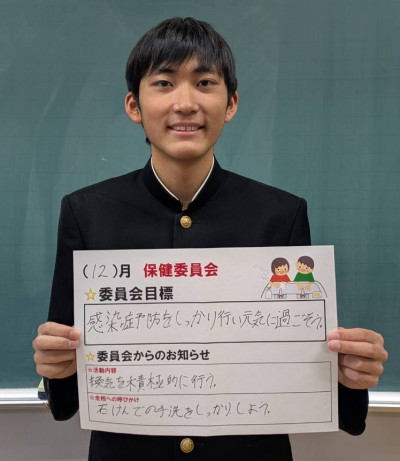 (12)月 保健委員会
☆委員会目標
感染症予防をしっかり行い元気に過ごそう。
☆委員会からのお知らせ
※活動内容
換気を積極的に行う。
※全校への呼びかけ
石けんでの手洗をしっかりしよう。